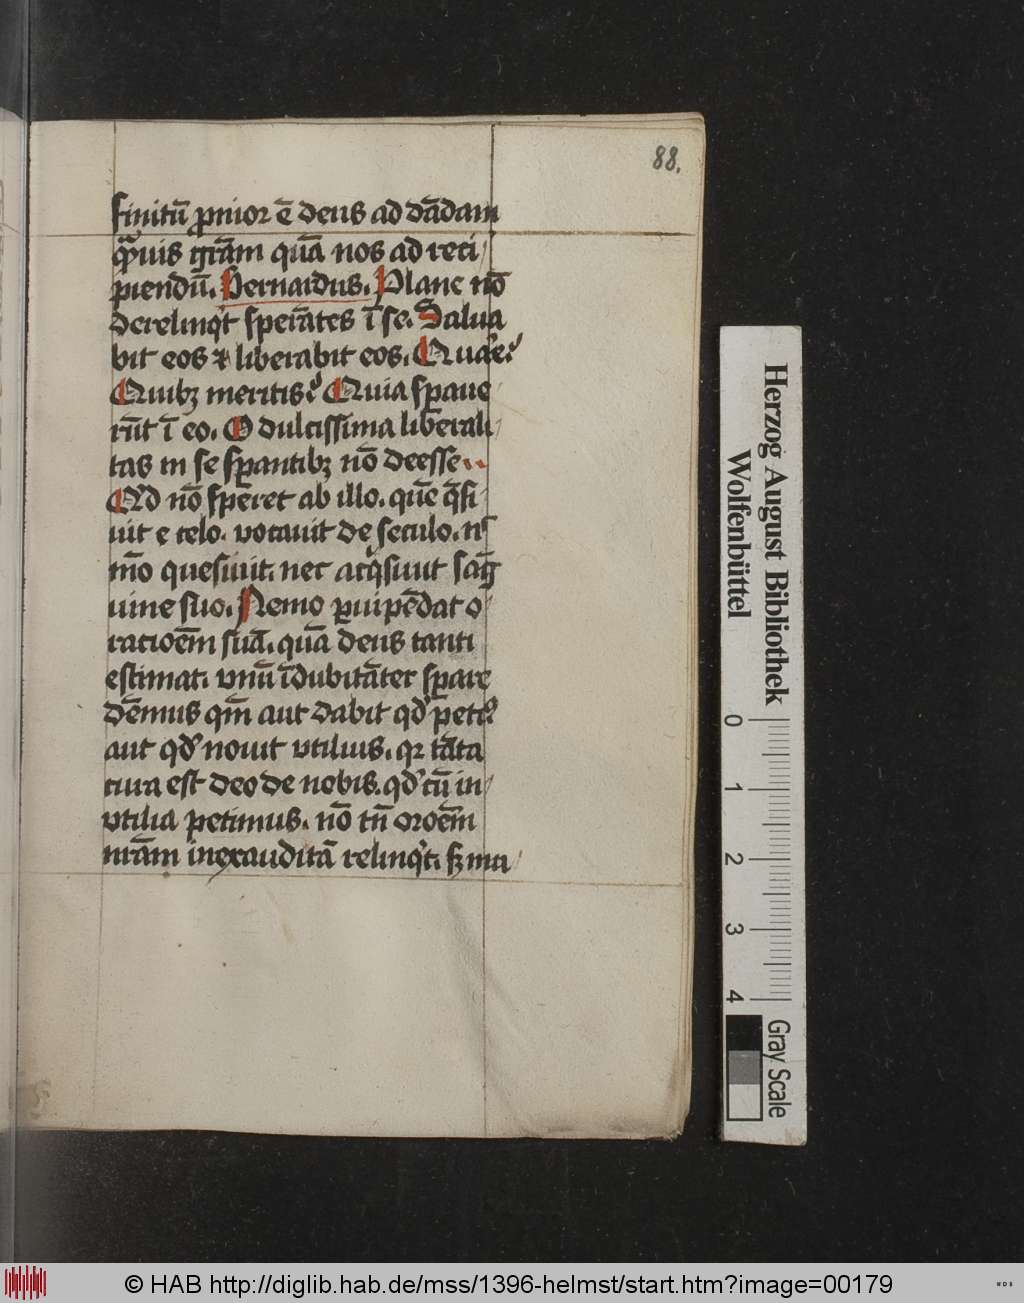 88.
finitū ꝓnior ē deus ad dādam
qͣuis grām quā nos ad reci/
piendū. Bernardus. Plane nō
derelinqͥt sperātes ī se. Salua
bit eos ⁊ liberabit eos. Quare?
Quibꝫ meritis? Quia sꝑaue/
rūt ī eo. O dulcissima liberali/
tas in se sꝑantibꝫ nō deesse
Qd nō speret ab illo. quē q̄si/
uit e celo. vocauit de seculo. nͥ
mō quesiuit. nec acqͥsiuit sāg
uine suo. Nemo ꝑuipēdat o/
racioēm suā. quā deus tanti
estimat. vnū īdubitāter sꝑare
dēmus qm̄ aut dabit qd' petiꝰ
aut qd' nouit vtilius. qꝛ tāta
cura est deo de nobis. qd' cū in/
vtilia petimus. nō tn̄ oroēm
nrām inexauditā relinqͥt. sꝫ mu/
Herzog August Bibliothek
Wolfenbüttel
0 1 2 3 4
Gray Scale
© HAB http://diglib.hab.de/mss/1396-helmst/start.htm?image=00179